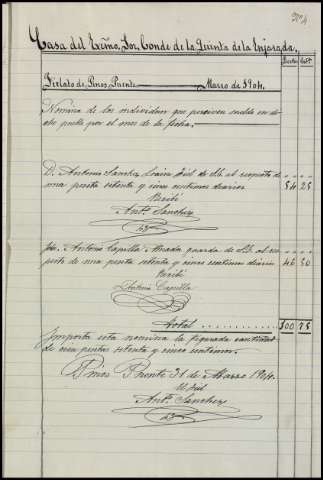 Nº 4
Casa del Excmo. Sor. Conde de la Quinta de la Enjarada.
Ptas Cts
Ferlato de Pinos Puente Marzo de 1904.
Nomina de los individuos que perciven sueldo en de
este punto por el mes de la fecha.
D. Antonio Sanchez fiel de Id. al respecto de
una peseta setenta y cinco centimos diarios 54 25
Recibí
Antº Sanchez
Id. Antonio Capilla guarda de Id. al res-
pecto de una peseta cincuenta centimos diarios 46 50
Recibí
Antonio Capilla
Total . . . . . . . . . . 100 75
Importa esta nomina la figurada cantidad
de cien pesetas setenta y cinco centimos.
Pinos Puente 31 de Marzo 1904.
El fiel
Antº Sanchez